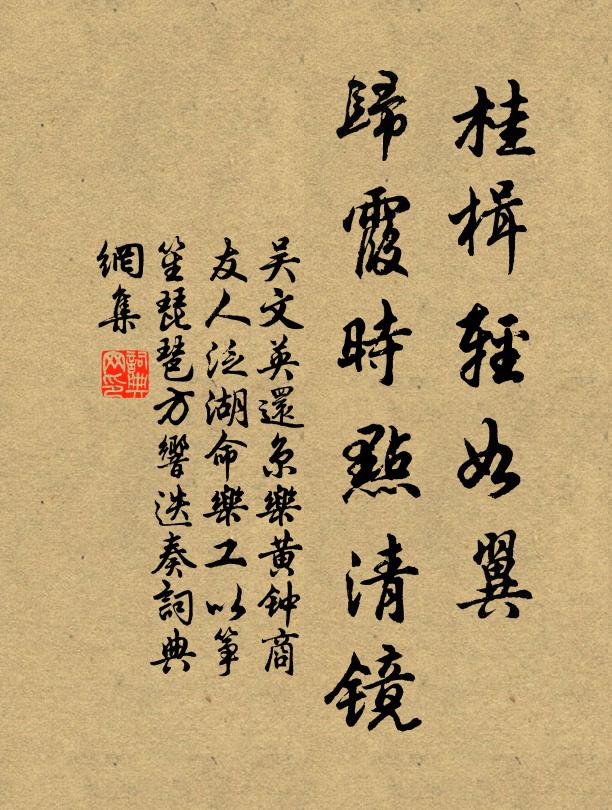 桂楫輕如翼
歸霞時點清镜
吴文英還京樂黄钟商
友人泛湖命樂工以箏
笙琵琶方響迭奏詞典
網集
詞典網印